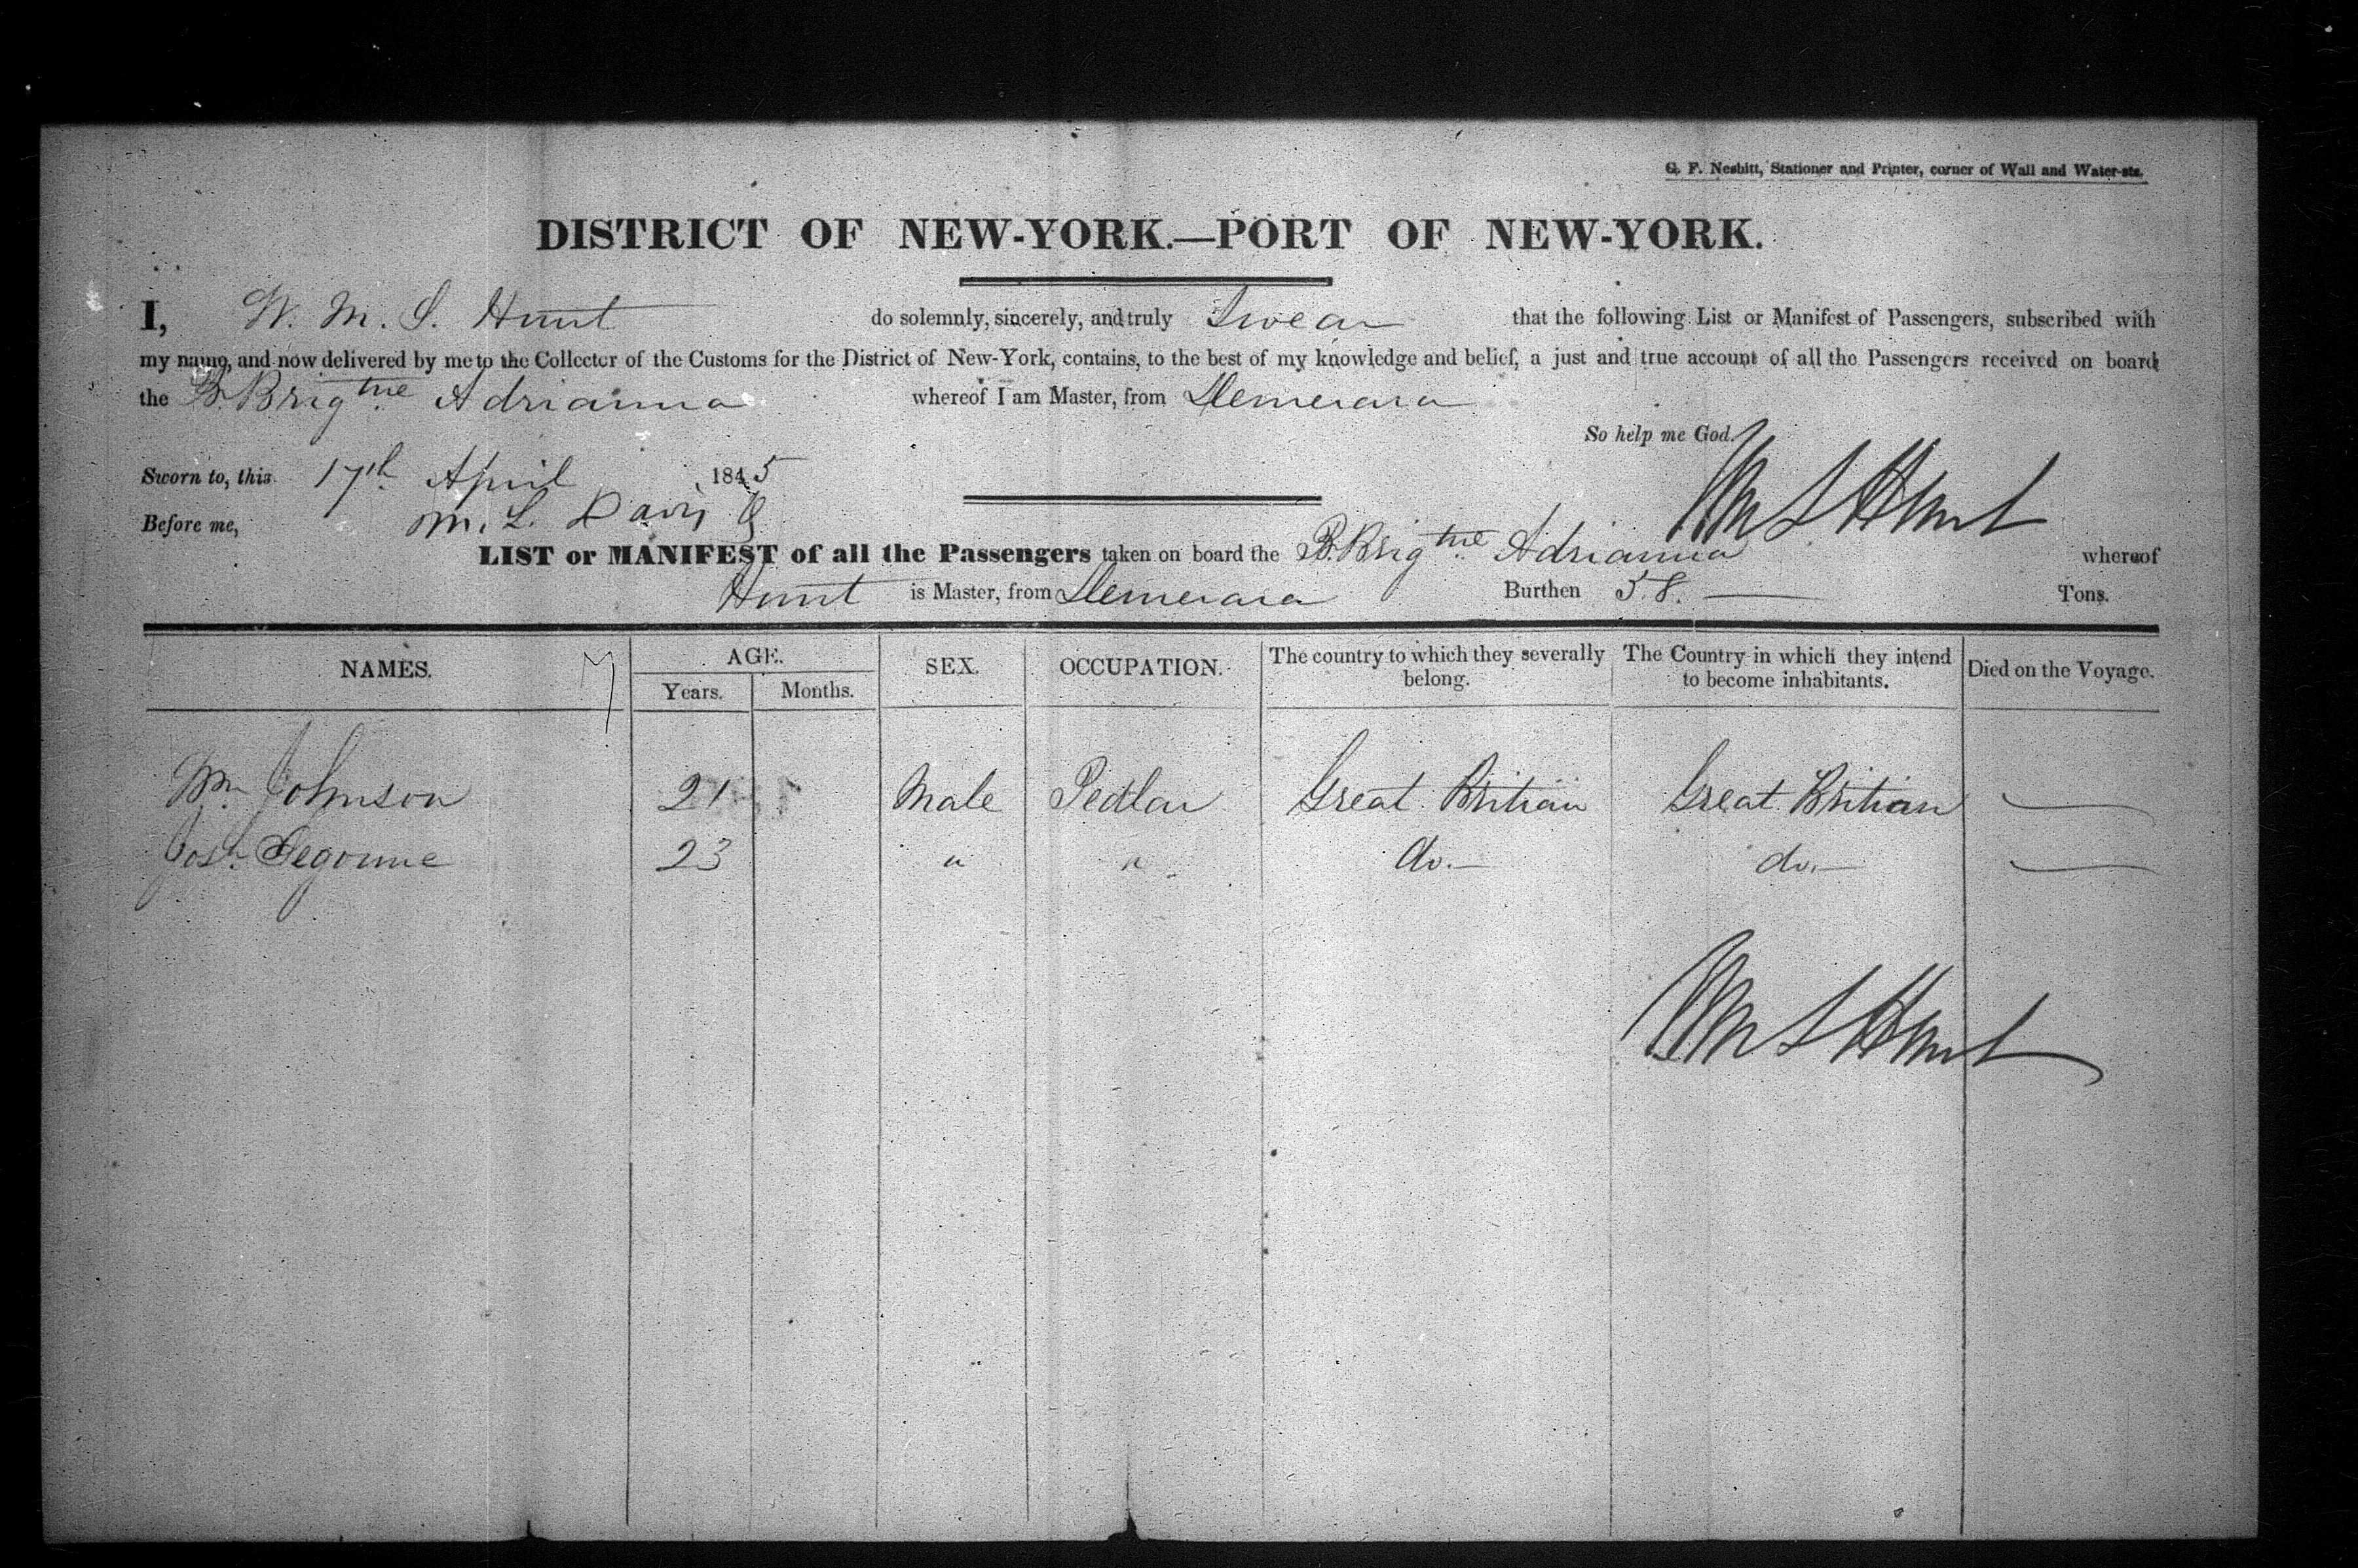 G. F. Nesbitt, Stationer and Printer, corner of Wall and Water-sts.
DISTRICT OF NEW-YORK.—PORT OF NEW-YORK.
I, W. M. S. Hunt do solemnly, sincerely, and truly Swear that the following List or Manifest of Passengers, subscribed with
my name, and now delivered by me to the Collector of the Customs for the District of New-York, contains, to the best of my knowledge and belief, a just and true account of all the Passengers received on board
the B. Brigtne Adrianna whereof I am Master, from Demerara
So help me God.
Wm S Hunt
Sworn to, this 17th April 1845
Before me, M. L. Davis
LIST or MANIFEST of all the Passengers taken on board the B. Brigtne Adrianna whereof
Hunt is Master, from Demerara Burthen 58. Tons.
NAMES. AGE. SEX. OCCUPATION. The country to which they severally belong. The Country in which they intend to become inhabitants. Died on the Voyage.
Years. Months.
Wm Johnson 21 Male Pedlar Great Britian Great Britian —
Josh. 23 " " do.— do.— —
Wm S Hunt